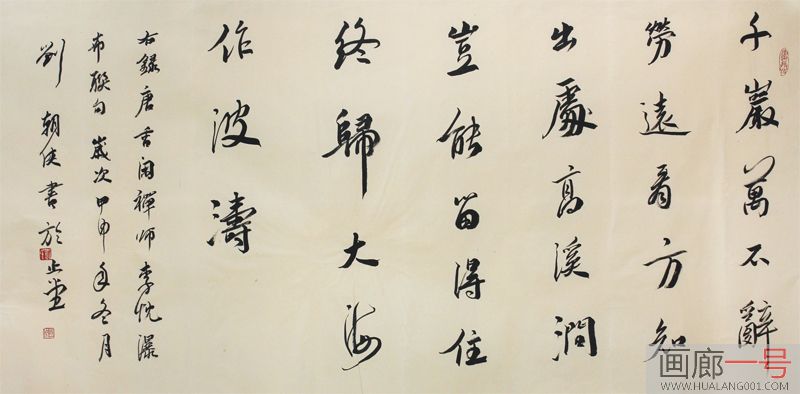 千巖萬不辭
勞遠看方知
出處高溪澗
豈能留得住
終歸大海
作波濤
右錄唐禪師李忱瀑
布聯句歲次甲申年冬月
劉朝侠書於止堂
画廊一号
WWW.HUALANG001.COM